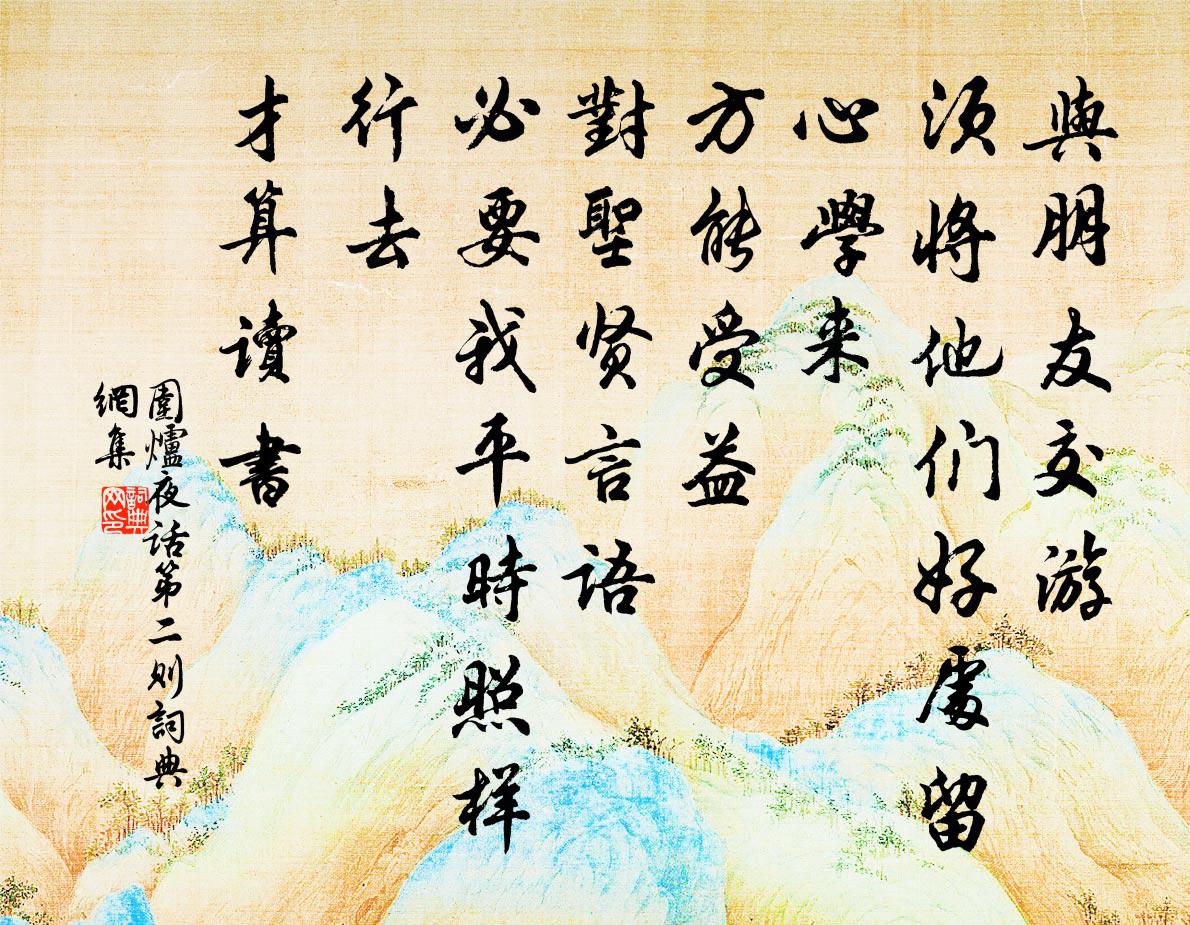 與朋友交游
須将他们好處留
心學来
方能受益
對聖贤言语
必要我平時照样
行去
才算讀書
圍爐夜话第二则詞典
網集
詞典
网印